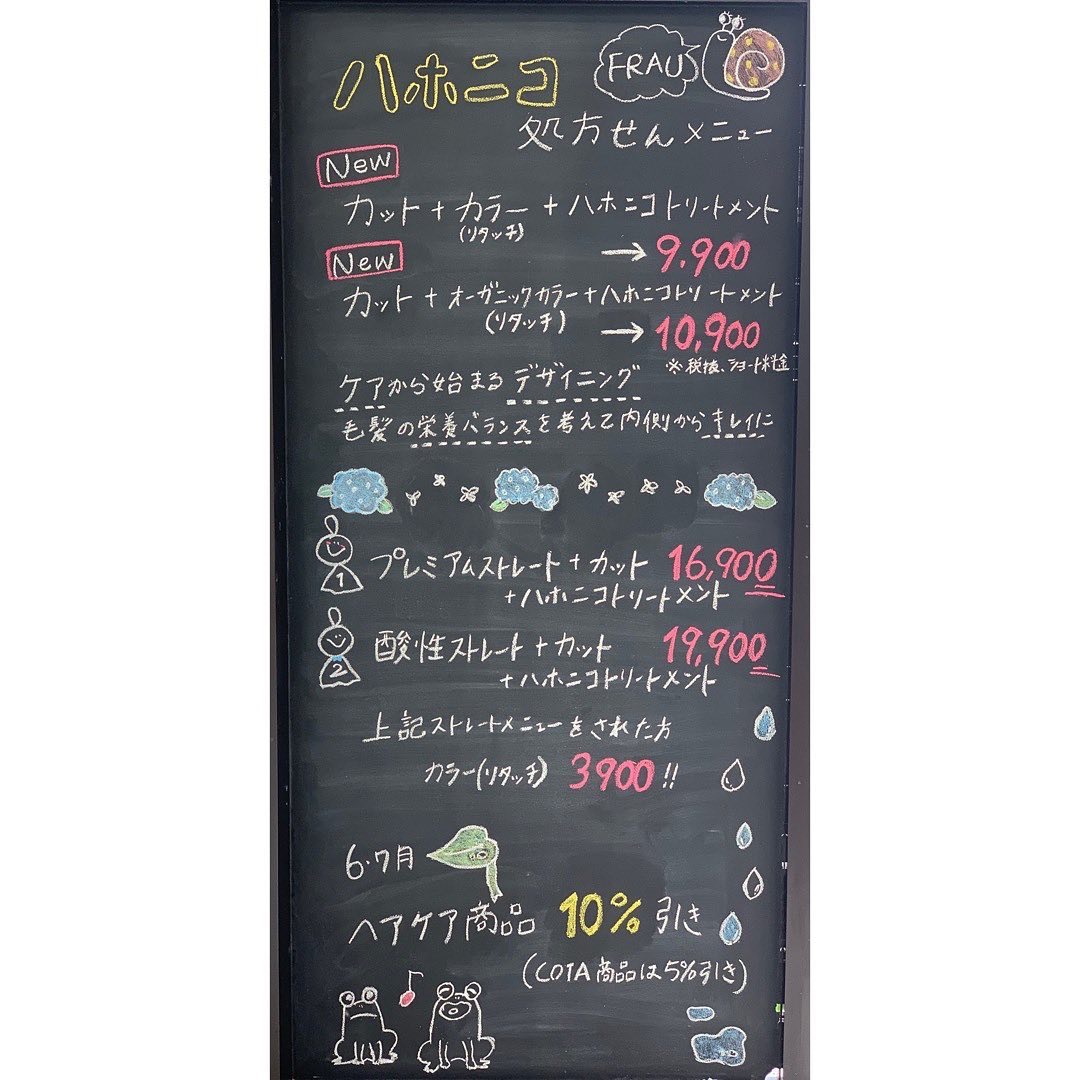 ハホニコ
FRAU
処方せんメニュー
New
カット+カラー+ハホニコトリートメント
(リタッチ)
→9.900
New
カット+オーガニックカラー+ハホニコトリートメント
(リタッチ)
→10,900
※税抜、ショート料金
ケアから始まるデザイニング
毛髪の栄養バランスを考えて内側からキレイに
1 プレミアムストレート+カット 16,900
+ハホニコトリートメント
2 酸性ストレート+カット 19,900
+ハホニコトリートメント
上記ストレートメニューをされた方
カラー(リタッチ) 3900!!
6・7月
ヘアケア商品 10%引き
(COTA商品は5%引き)